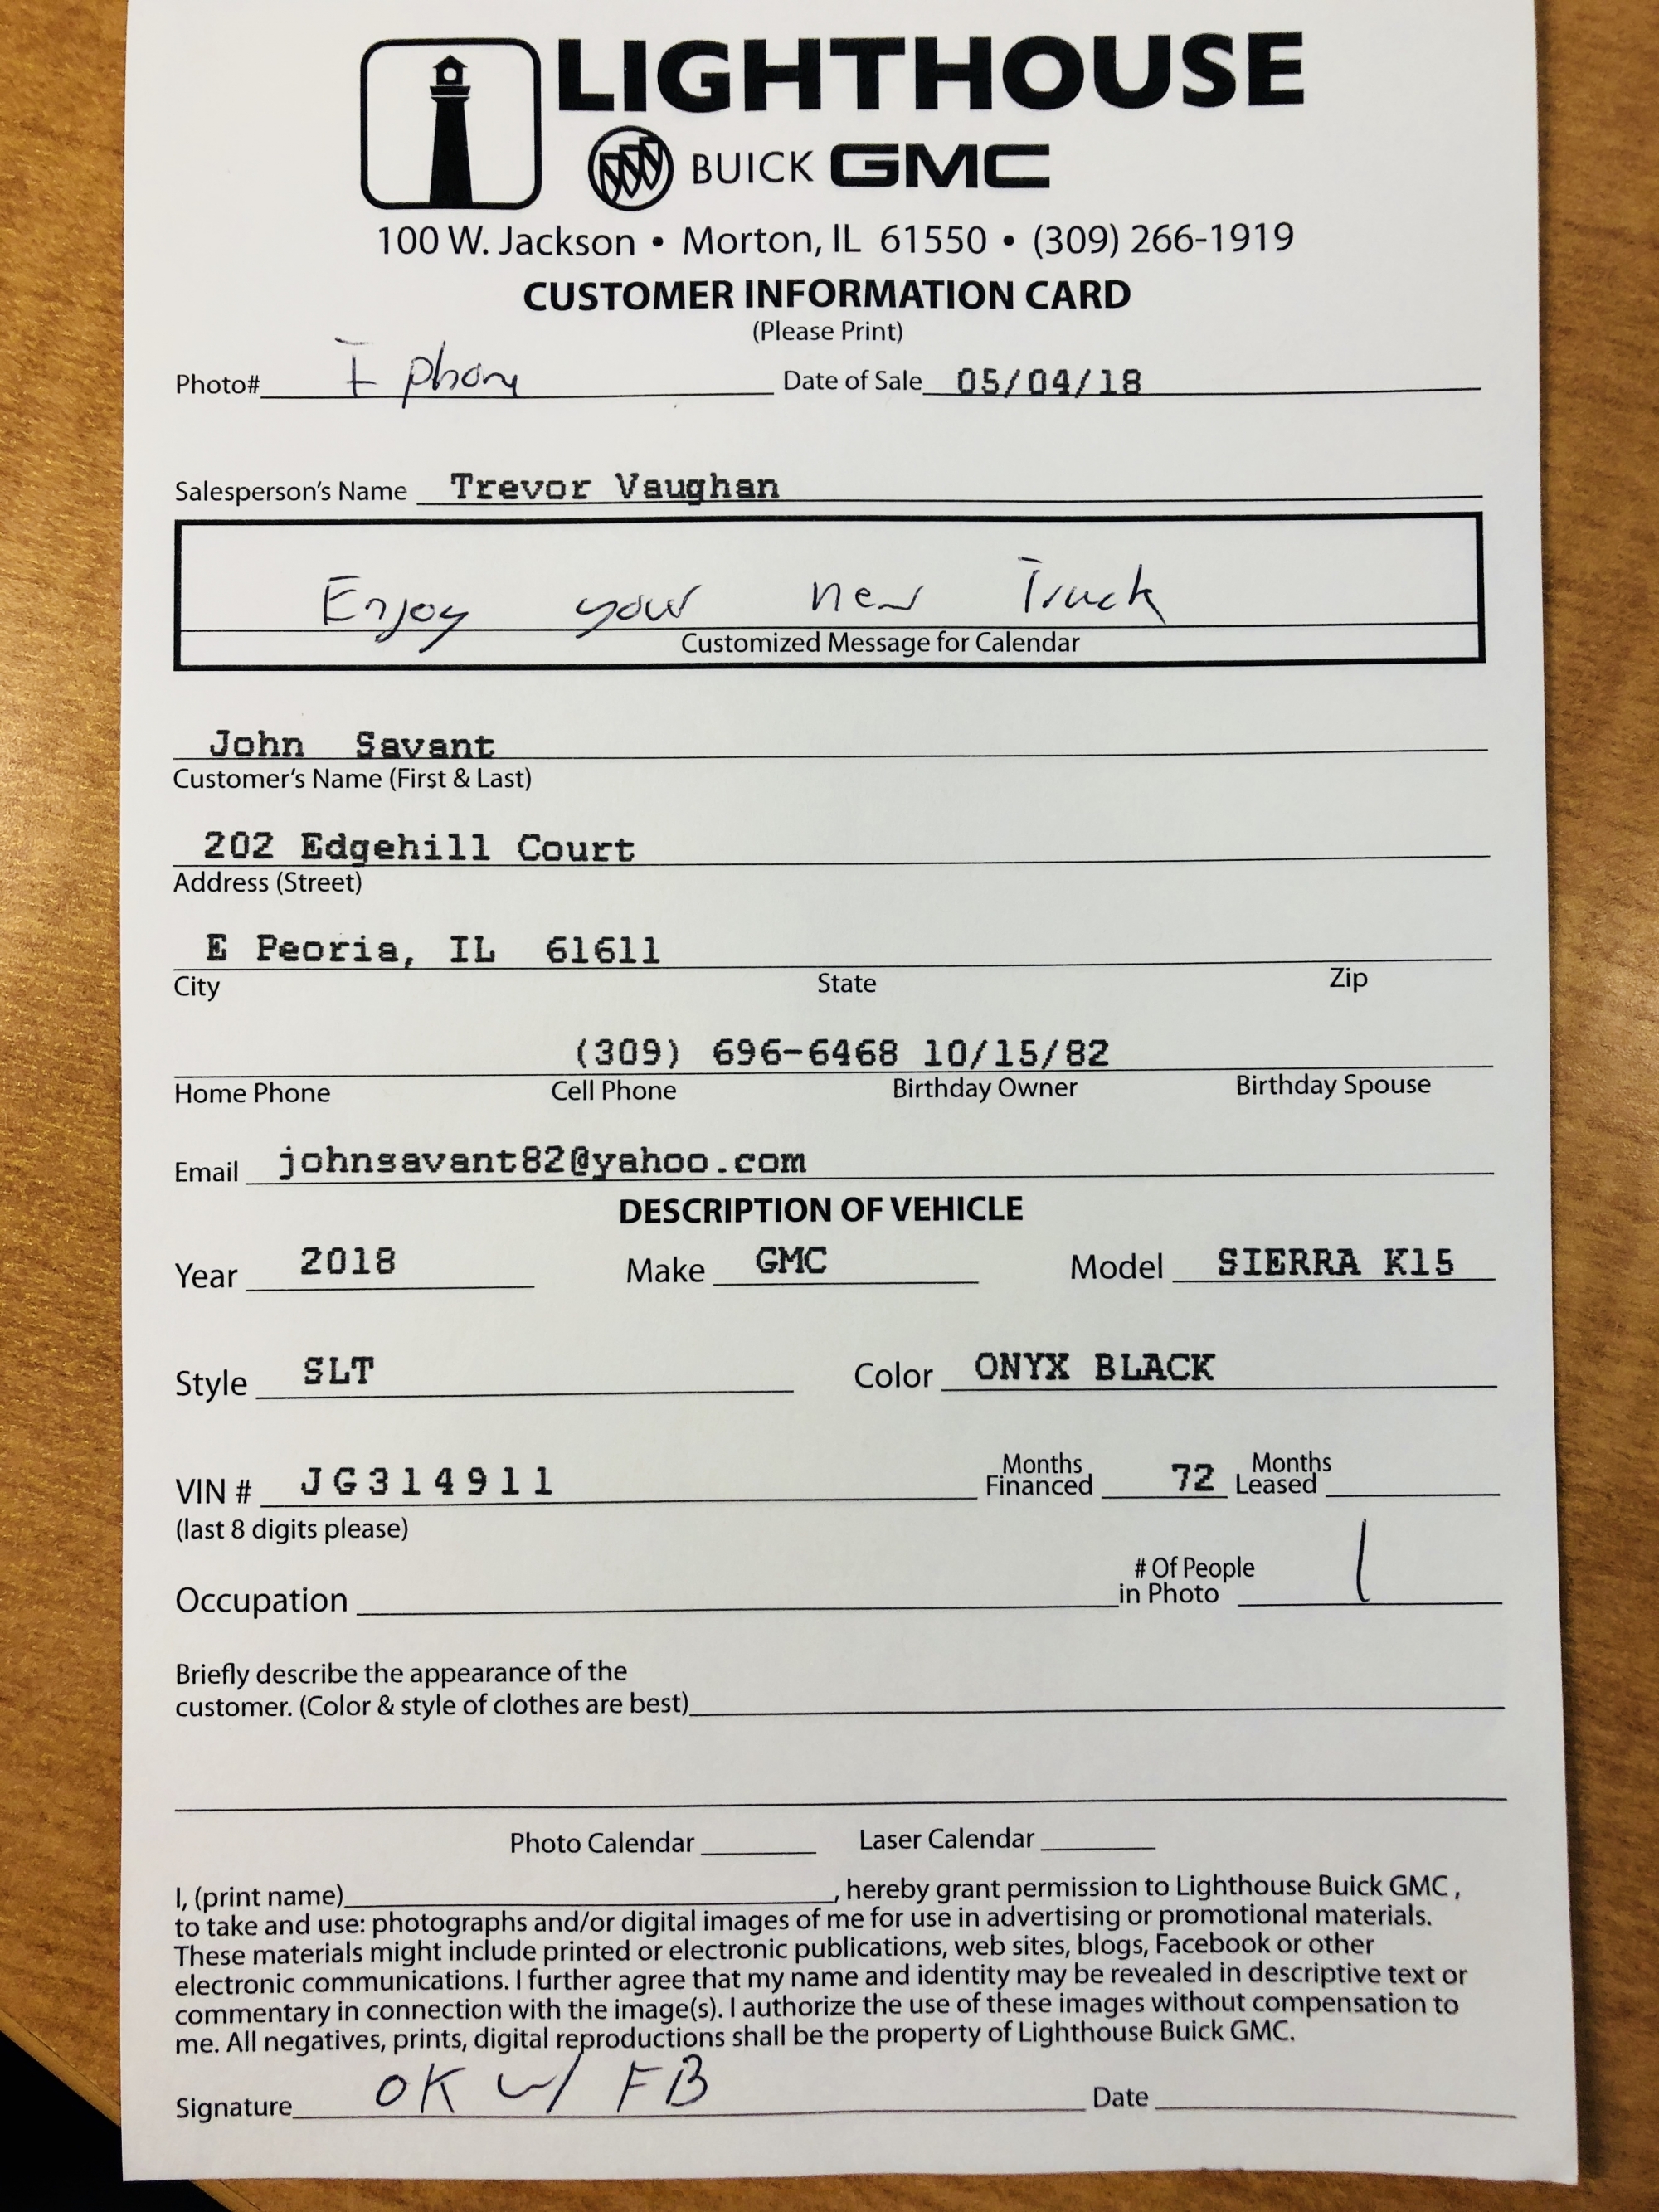 LIGHTHOUSE
BUICK GMC
100 W. Jackson • Morton, IL 61550 • (309) 266-1919
CUSTOMER INFORMATION CARD
(Please Print)
Photo# I phone Date of Sale 05/04/18
Salesperson's Name Trevor Vaughan
Enjoy your new Truck
Customized Message for Calendar
John Savant
Customer's Name (First & Last)
202 Edgehill Court
Address (Street)
E Peoria, IL 61611
City State Zip
(309) 696-6468 10/15/82
Home Phone Cell Phone Birthday Owner Birthday Spouse
Email johnsavant82@yahoo.com
DESCRIPTION OF VEHICLE
Year 2018 Make GMC Model SIERRA K15
Style SLT Color ONYX BLACK
VIN # JG314911 Months Financed 72 Months Leased
(last 8 digits please)
Occupation # Of People in Photo 1
Briefly describe the appearance of the
customer. (Color & style of clothes are best)
Photo Calendar Laser Calendar
I, (print name) , hereby grant permission to Lighthouse Buick GMC ,
to take and use: photographs and/or digital images of me for use in advertising or promotional materials.
These materials might include printed or electronic publications, web sites, blogs, Facebook or other
electronic communications. I further agree that my name and identity may be revealed in descriptive text or
commentary in connection with the image(s). I authorize the use of these images without compensation to
me. All negatives, prints, digital reproductions shall be the property of Lighthouse Buick GMC.
Signature OK w/ FB Date